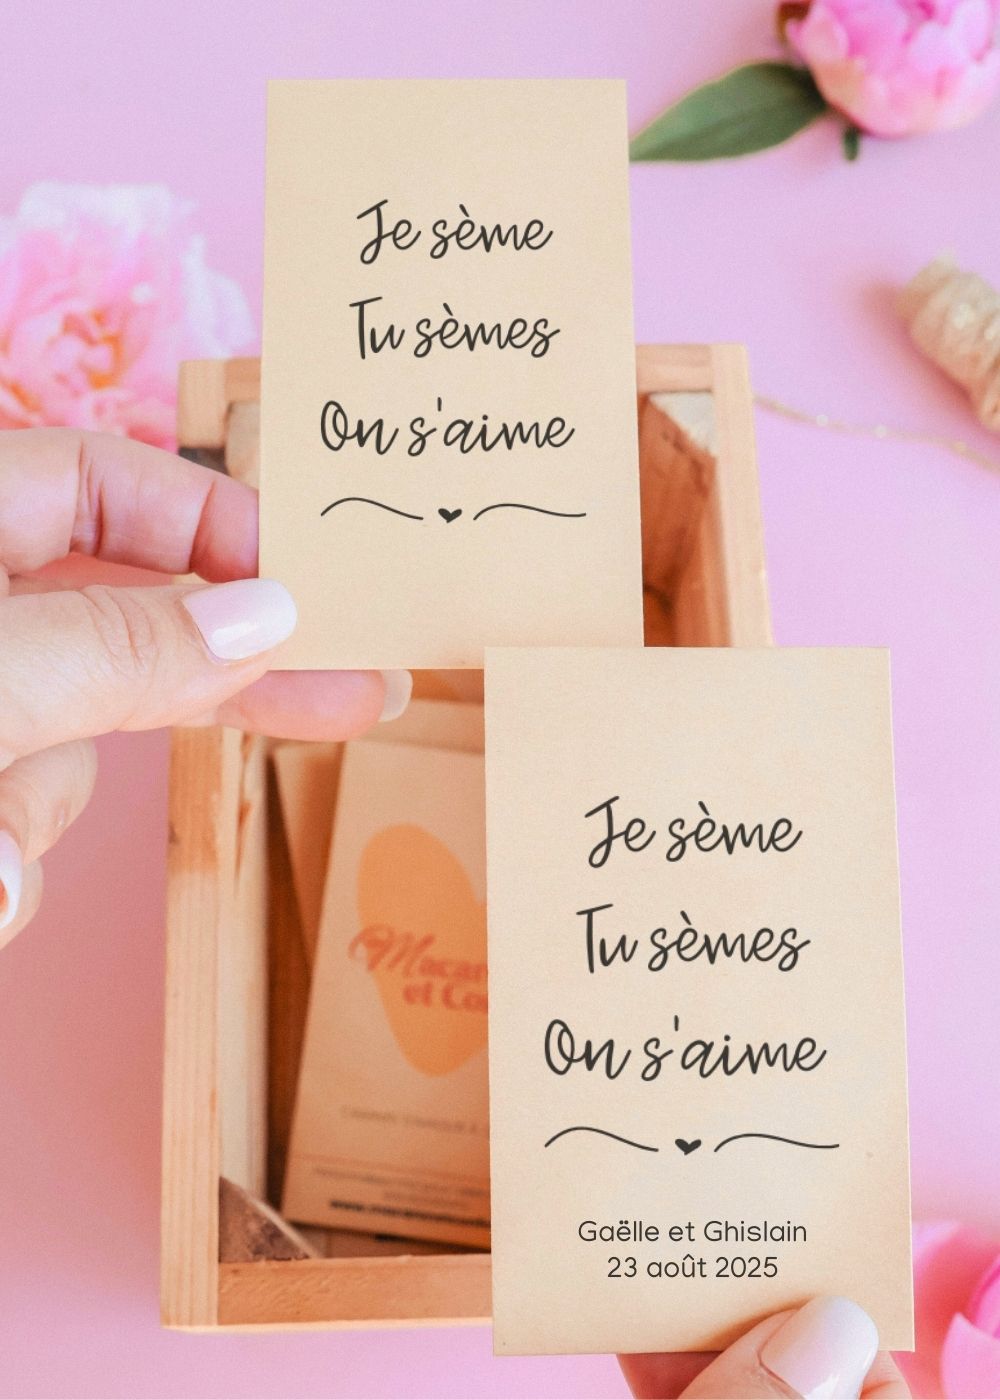 Je sème
Tu sèmes
On s'aime
Je sème
Tu sèmes
On s'aime
Gaëlle et Ghislain
23 août 2025
et